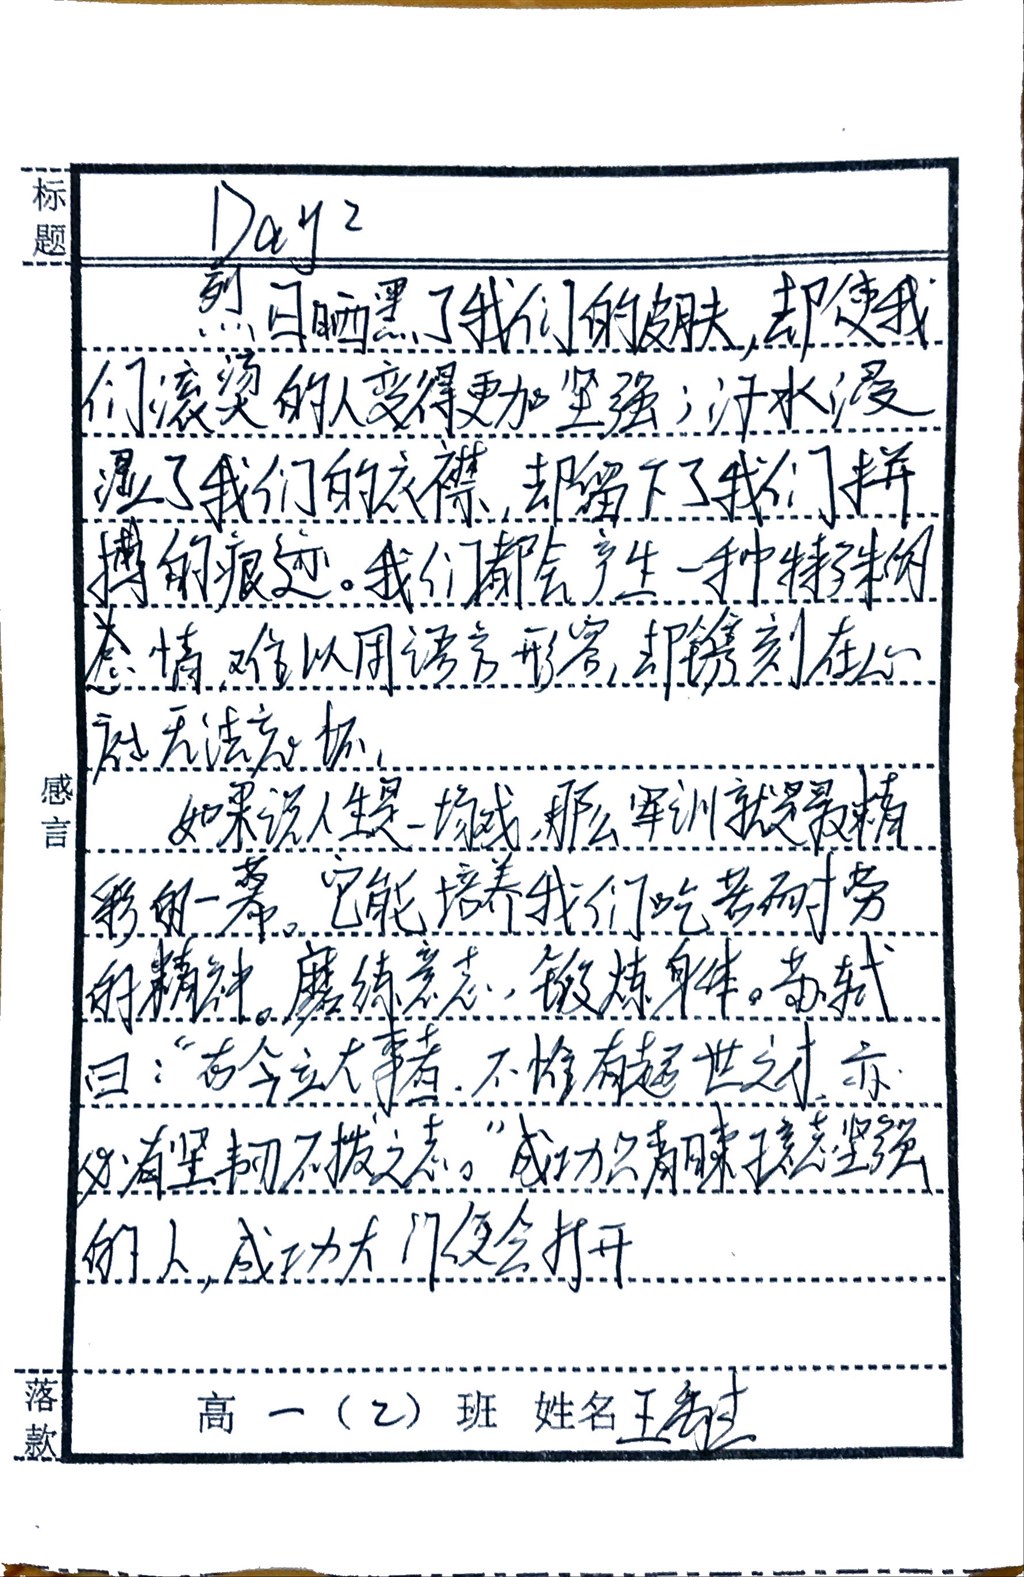 标题
Day 2
烈日晒黑了我们的皮肤,却使我
们滚烫的人变得更加坚强;汗水浸
湿了我们的衣襟,却留下了我们拼
搏的痕迹。我们都会产生一种特殊的
感情,难以用语言形容,却镌刻在心
底无法忘怀,
感言
如果说人生是一场戏,那么军训就是最精
彩的一幕。它能培养我们吃苦耐劳
的精神。磨练意志,锻炼身体。苏轼
曰:“古今立大事者,不惟有超世之才,亦
必有坚韧不拔之志。”成功只青睐意志坚强
的人,成功大门便会打开
落款
高一(2)班 姓名王